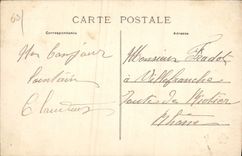 63
CARTE POSTALE
Correspondance
Adresse
Un bonjour
lointain
Monsieur Fradot
à Villefranche
Route de
Rhône